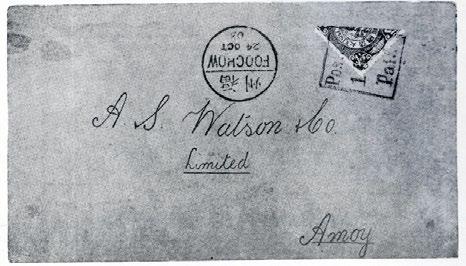 福州
FOOCHOW
24 OCT
03
Pos
1
Paid
A. S. Watson & Co.
Limited
Amoy